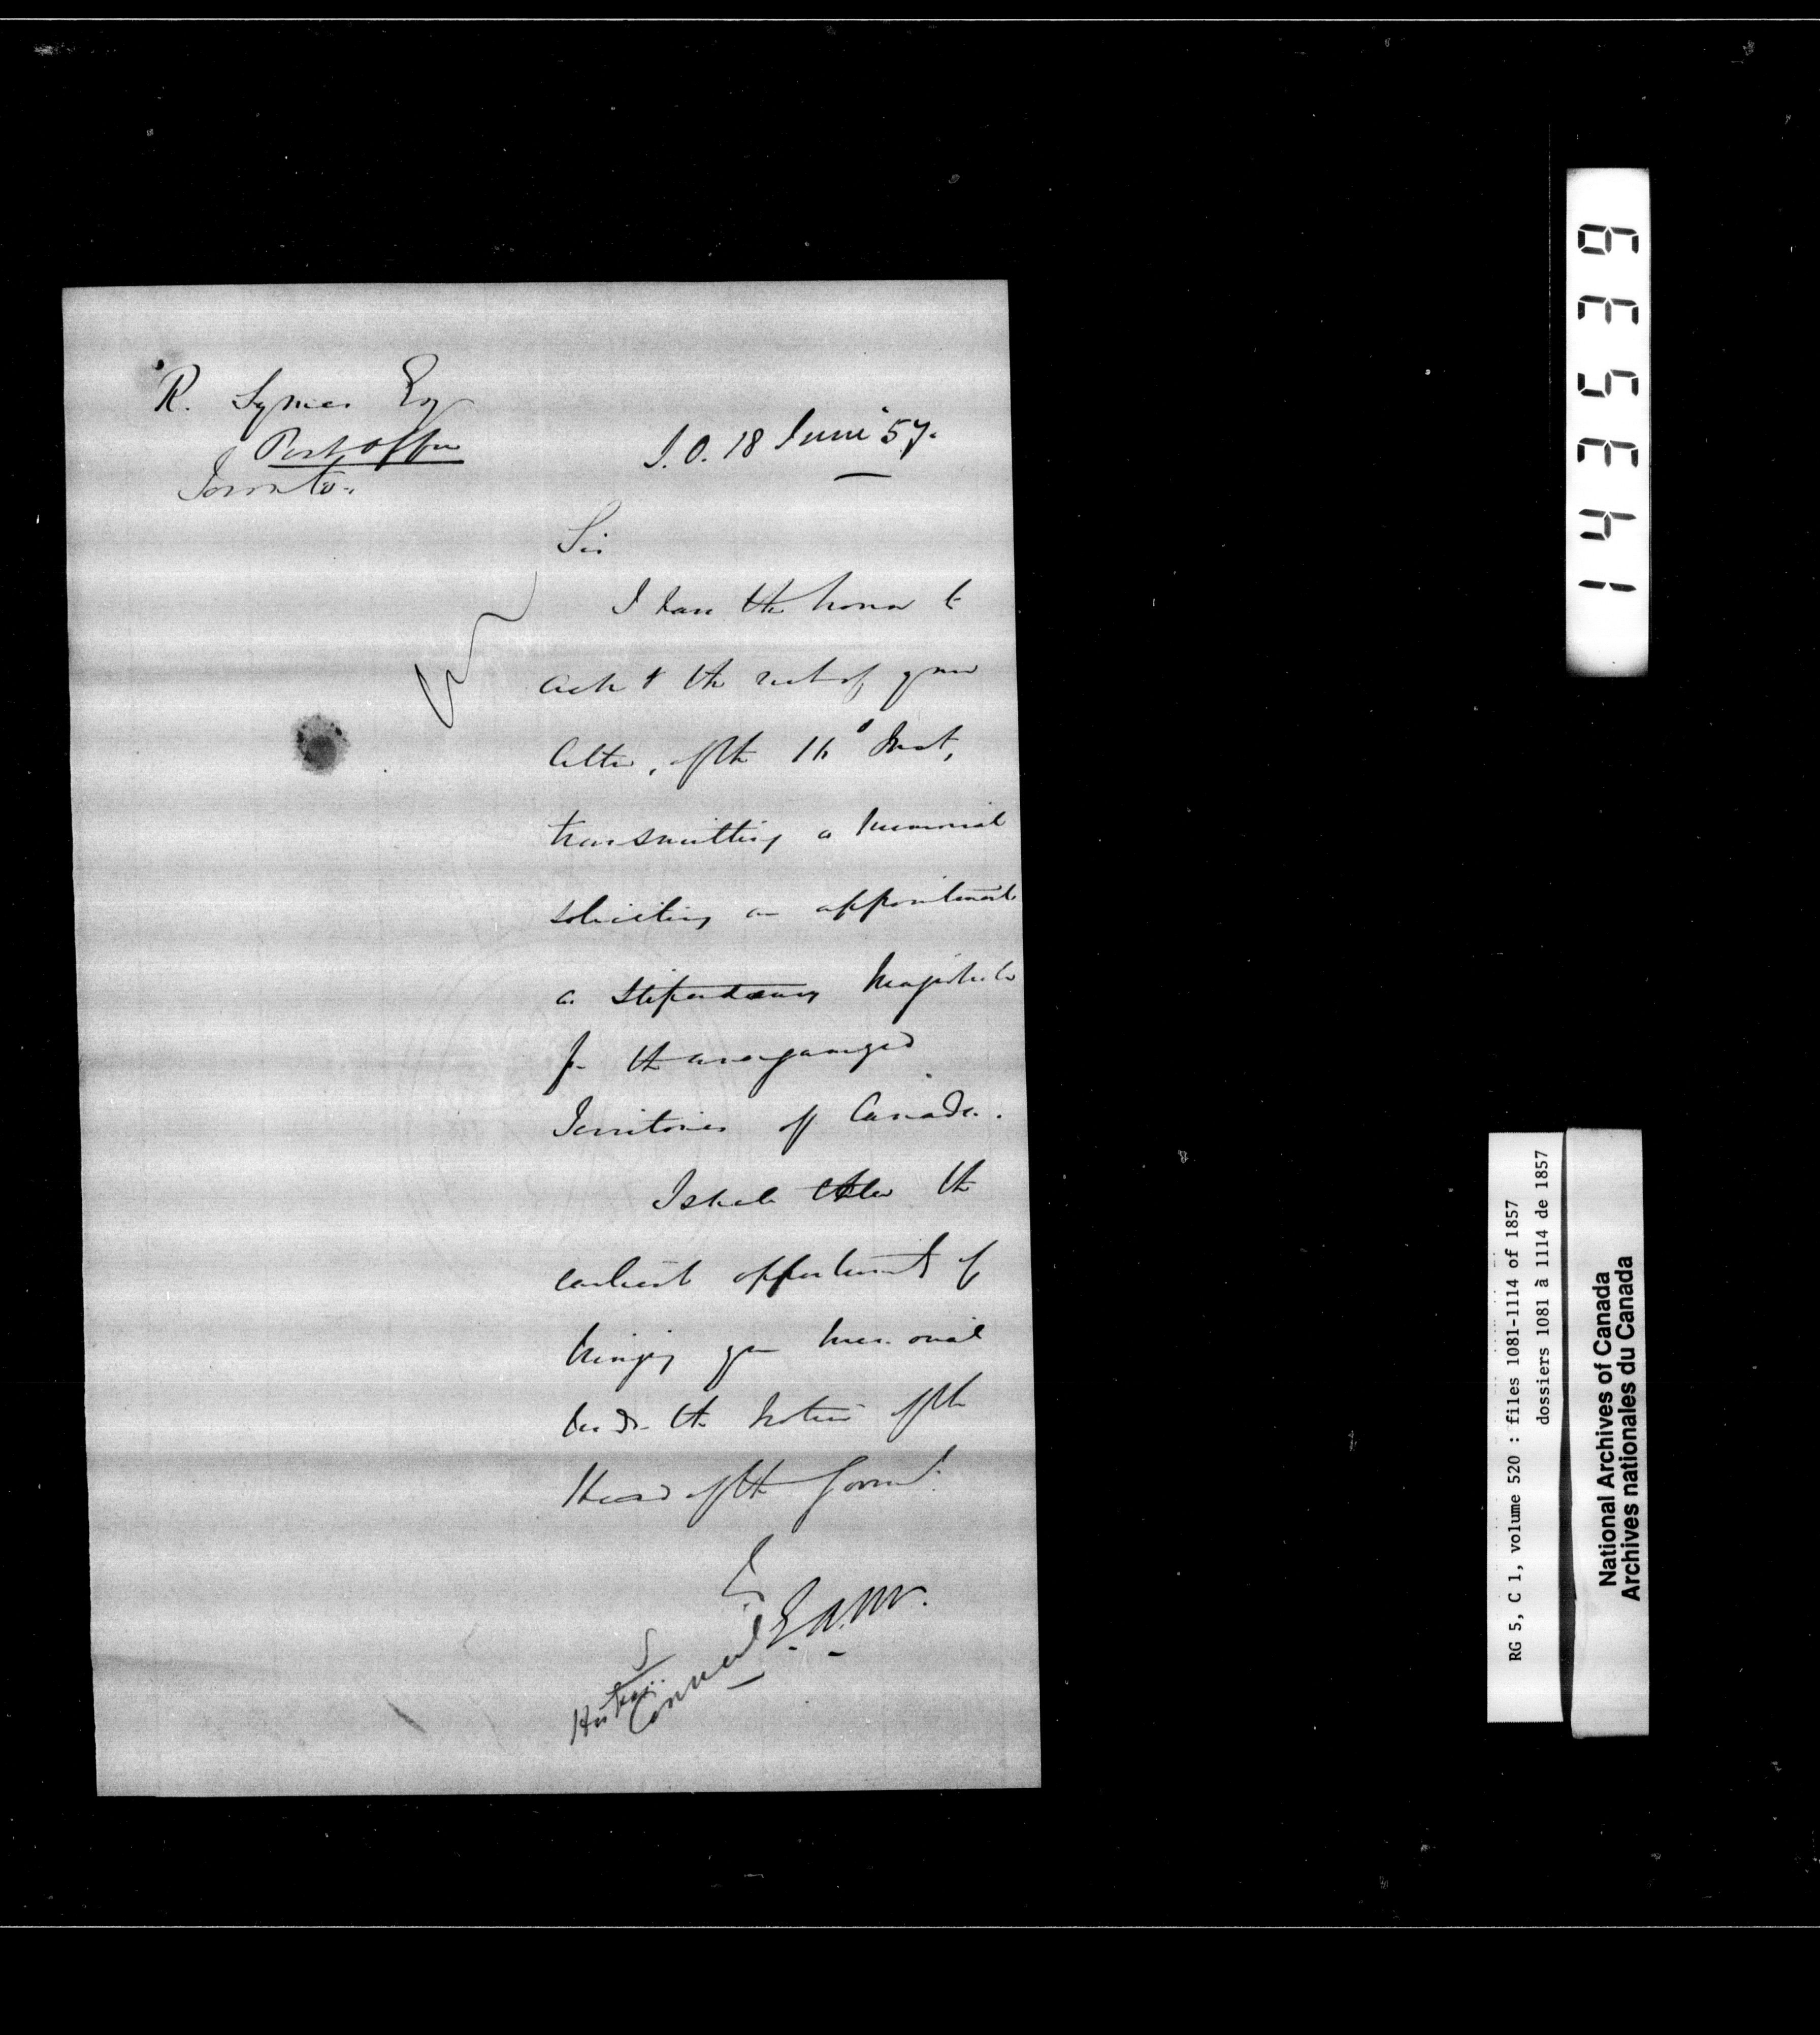 R. Symes Esq
Post Office
Toronto.
S.O. 18 June 57.
Sir
I have the honor to
ackn the rect of your
letter, of the 16 Inst,
transmitting a memorial
soliciting an appointment
as Stipendiary Magistrate
for the unorganized
Territories of Canada.
I shall take the
earliest opportunity of
bringing your memorial
under the notice of the
Head of the Governt.
E.A.M.
143539
RG 5, C 1, volume 520 : files 1081-1114 of 1857
dossiers 1081 à 1114 de 1857
National Archives of Canada
Archives nationales du Canada